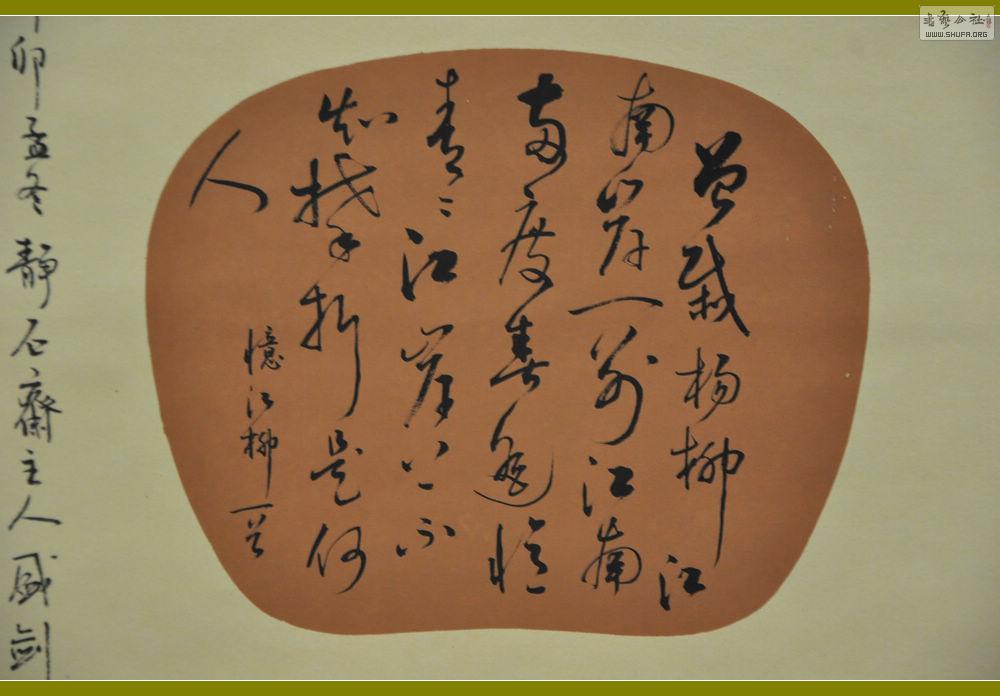 曾栽杨柳江
南岸一别江南
两度春遥憶
青〻江岸上不
知攀折是何
人
憶江柳一首
卯孟冬静石齋主人盛剑
書藝公社
WWW.SHUFA.ORG